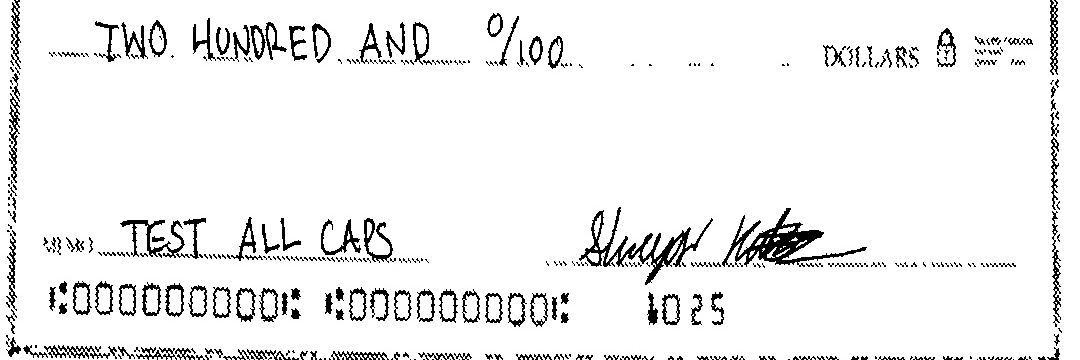 TWO HUNDRED AND 0/100 DOLLARS
MEMO TEST ALL CAPS
⑆000000000⑆ ⑆000000000⑆ 1025